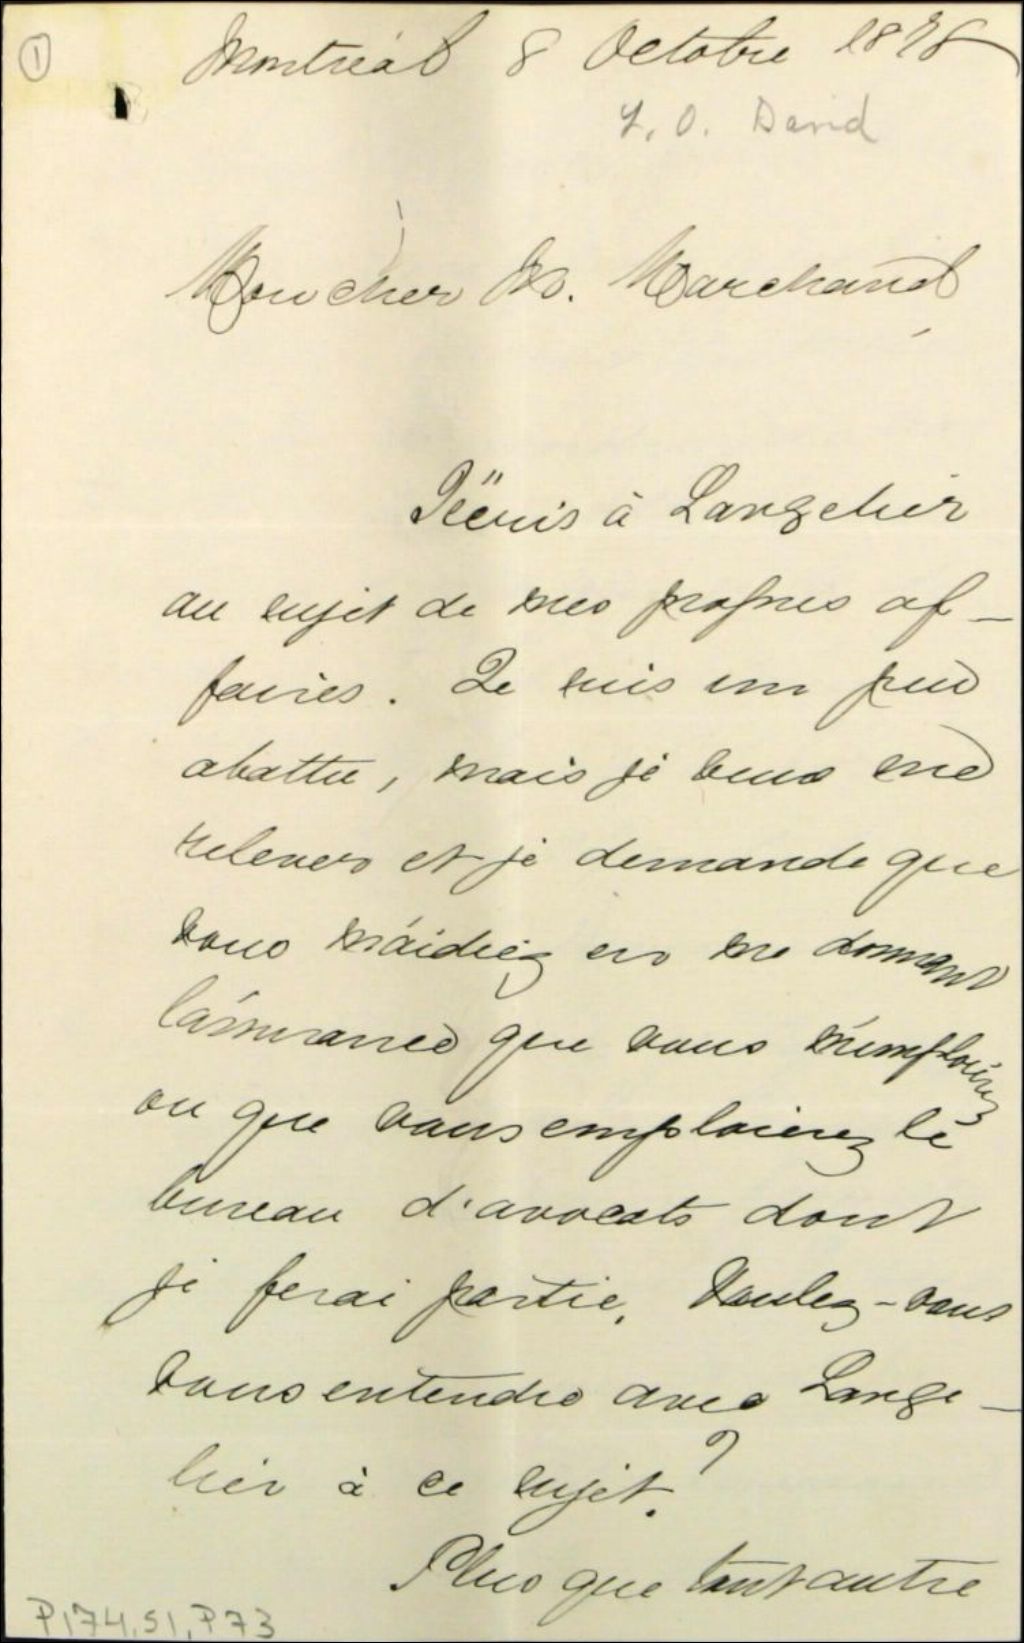 ①
Montréal 8 Octobre 1878
L. O. David
Mon cher M. Marchand
J'écris à Langelier
au sujet de mes propres af-
faires. Je suis un peu
abattu, mais je veux me
relever et je demande que
vous m'aidiez en me donnant
l'assurance que vous m'emploierez
ou que vous emploierez le
bureau d'avocats dont
je ferai partie. Voulez-vous
vous entendre avec Lange-
lier à ce sujet?
Plus que tout autre
P174,S1,P73